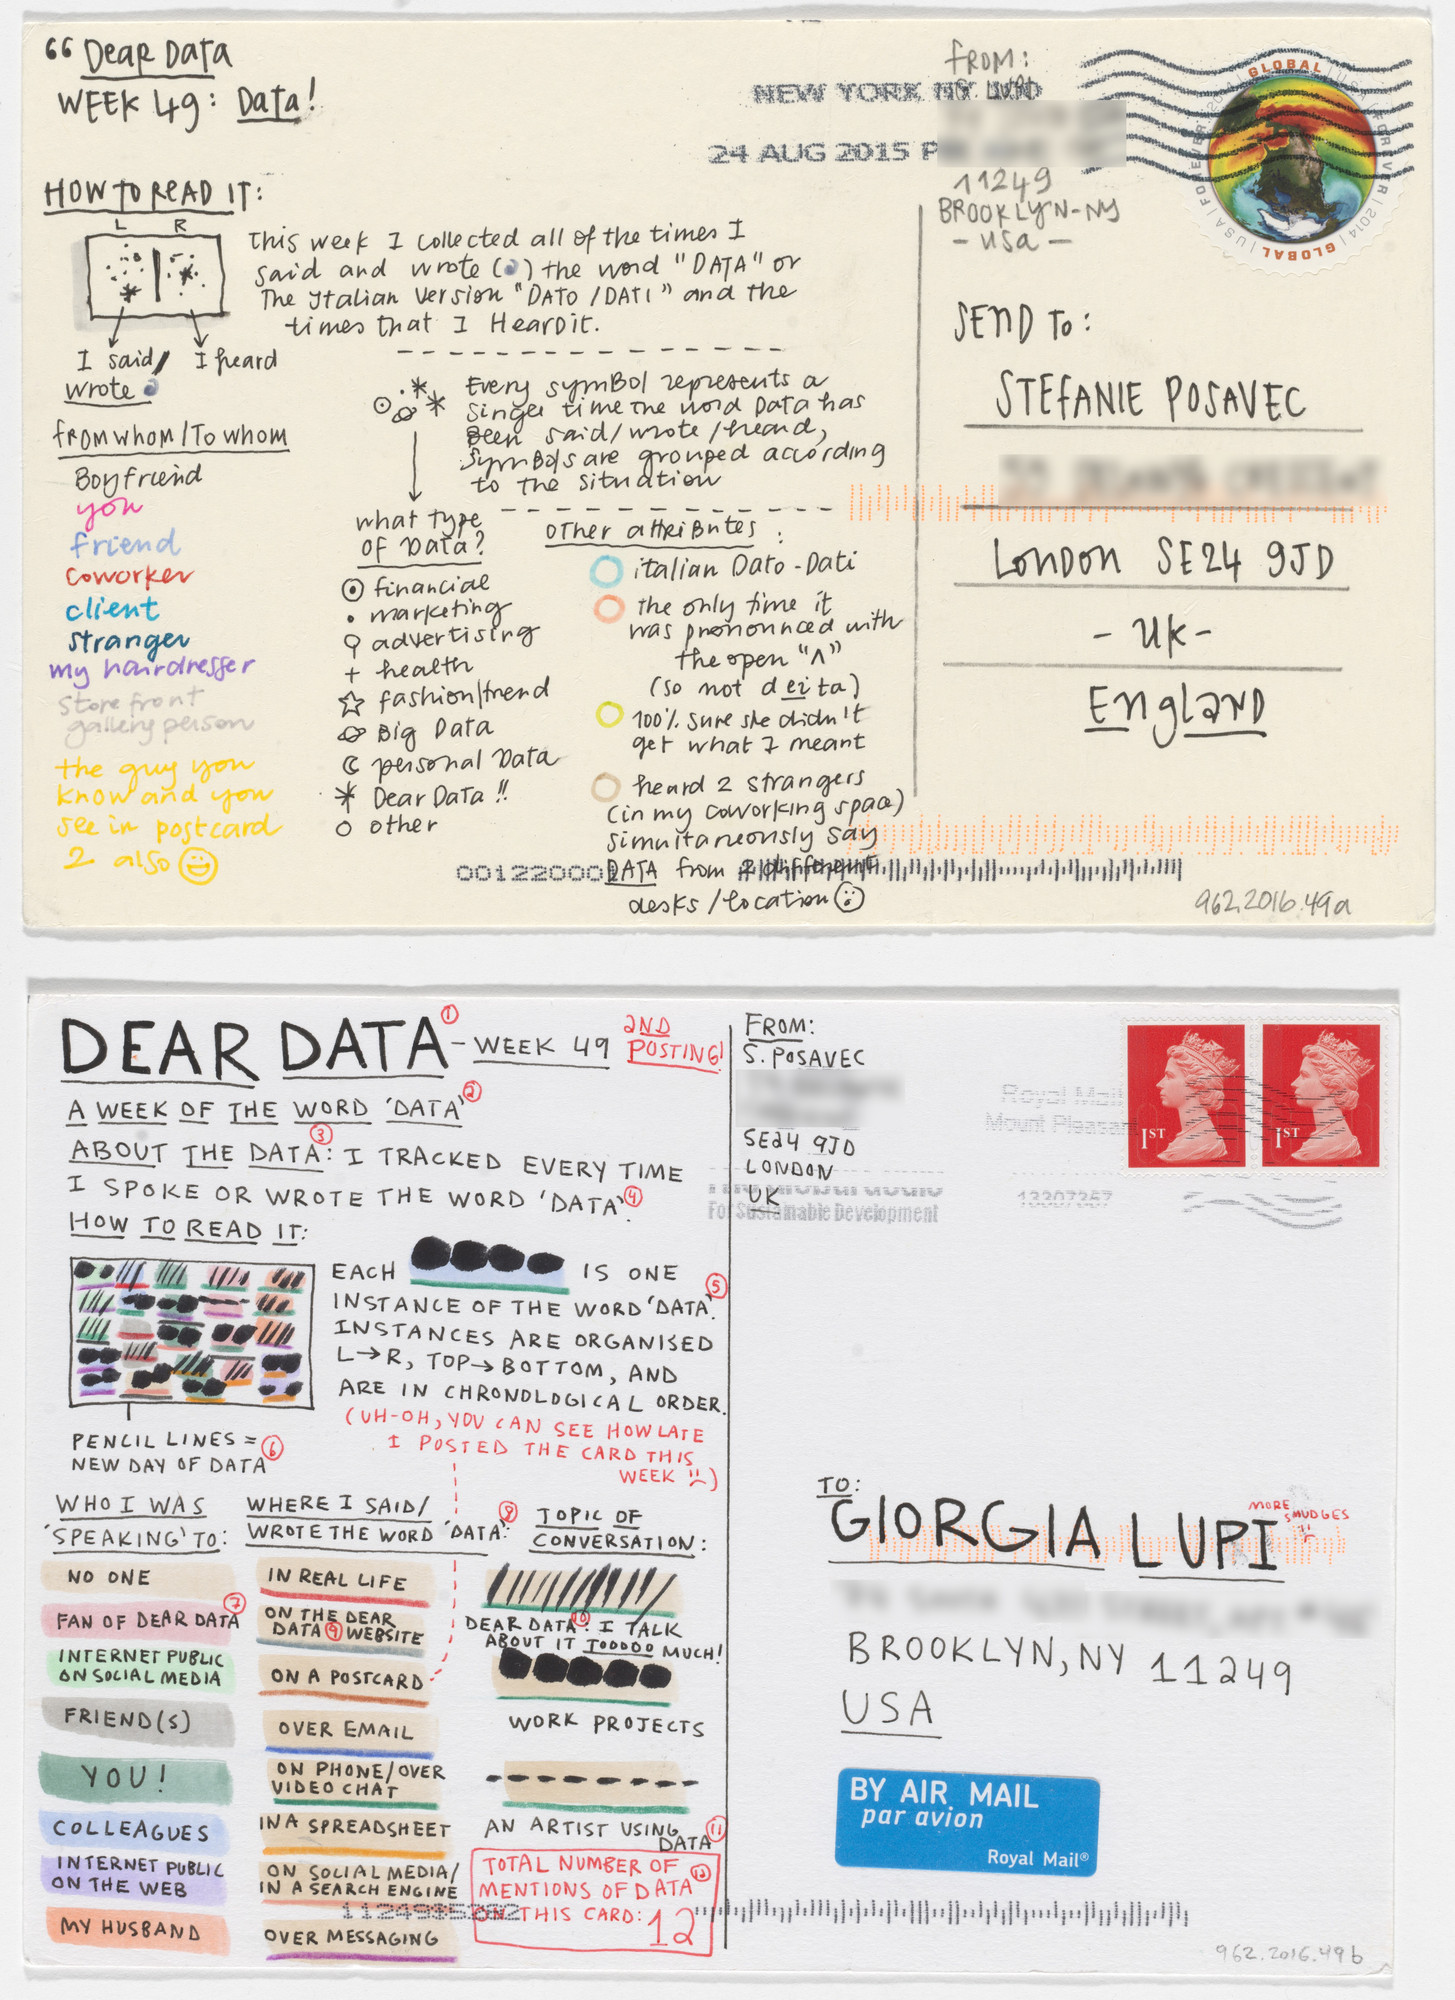 “ Dear Data
WEEK 49: Data!
HOW TO READ IT:
L R
I said/ I heard
wrote
This week I collected all of the times I
said and wrote ( ) the word "DATA" or
The Italian version "DATO/DATI" and the
times that I Heard it.
Every symBol represents a
singer time the word Data has
Been said/wrote/heard,
SymBols are grouped according
to the situation
from whom/To whom
Boyfriend
you
friend
coworker
client
stranger
my hairdresser
store front
gallery person
the guy you
know and you
see in postcard
2 also
what type
OF Data?
financial
marketing
advertising
health
fashion/trend
Big Data
personal Data
Dear Data !!
other
other attributes:
italian Dato-Dati
the only time it
was pronounced with
the open "Λ"
(so not deita)
100% sure she didn't
get what I meant
heard 2 strangers
(in my coworking space)
simultaneously say
DATA from 2 different
desks/location
FROM:
NEW YORK NY
24 AUG 2015 P
11249
BROOKLYN-NY
- USA -
GLOBAL | USA | FOREVER | 2014 | GLOBAL | USA | FOREVER | 2014
SEND To:
STEFANIE POSAVEC
LONDON SE24 9JD
- UK -
ENGLAND
962.2016.49a
DEAR DATA① - WEEK 49 2ND POSTING!
A WEEK OF THE WORD 'DATA'②
ABOUT THE DATA③: I TRACKED EVERY TIME
I SPOKE OR WROTE THE WORD 'DATA'④.
HOW TO READ IT:
EACH IS ONE
INSTANCE OF THE WORD 'DATA'⑤.
INSTANCES ARE ORGANISED
L→R, TOP→BOTTOM, AND
ARE IN CHRONOLOGICAL ORDER.
(UH-OH, YOU CAN SEE HOW LATE
I POSTED THE CARD THIS
WEEK )
PENCIL LINES =
NEW DAY OF DATA⑥
WHO I WAS
'SPEAKING' TO:
NO ONE
FAN OF DEAR DATA⑦
INTERNET PUBLIC
ON SOCIAL MEDIA
FRIEND(S)
YOU!
COLLEAGUES
INTERNET PUBLIC
ON THE WEB
MY HUSBAND
WHERE I SAID/
WROTE THE WORD 'DATA'⑧:
IN REAL LIFE
ON THE DEAR
DATA⑨ WEBSITE
ON A POSTCARD
OVER EMAIL
ON PHONE/OVER
VIDEO CHAT
IN A SPREADSHEET
ON SOCIAL MEDIA/
IN A SEARCH ENGINE
OVER MESSAGING
TOPIC OF
CONVERSATION:
DEAR DATA⑩: I TALK
ABOUT IT TOOOOO MUCH!
WORK PROJECTS
AN ARTIST USING
DATA⑪
TOTAL NUMBER OF
MENTIONS OF DATA⑫
ON THIS CARD: 12
FROM:
S. POSAVEC
SE24 9JD
LONDON
UK
Royal Mail
Mount Pleasant
For Sustainable Development
13307357
1ST
1ST
TO:
GIORGIA LUPI
MORE
SMUDGES
BROOKLYN, NY 11249
USA
BY AIR MAIL
par avion
Royal Mail®
962.2016.49b